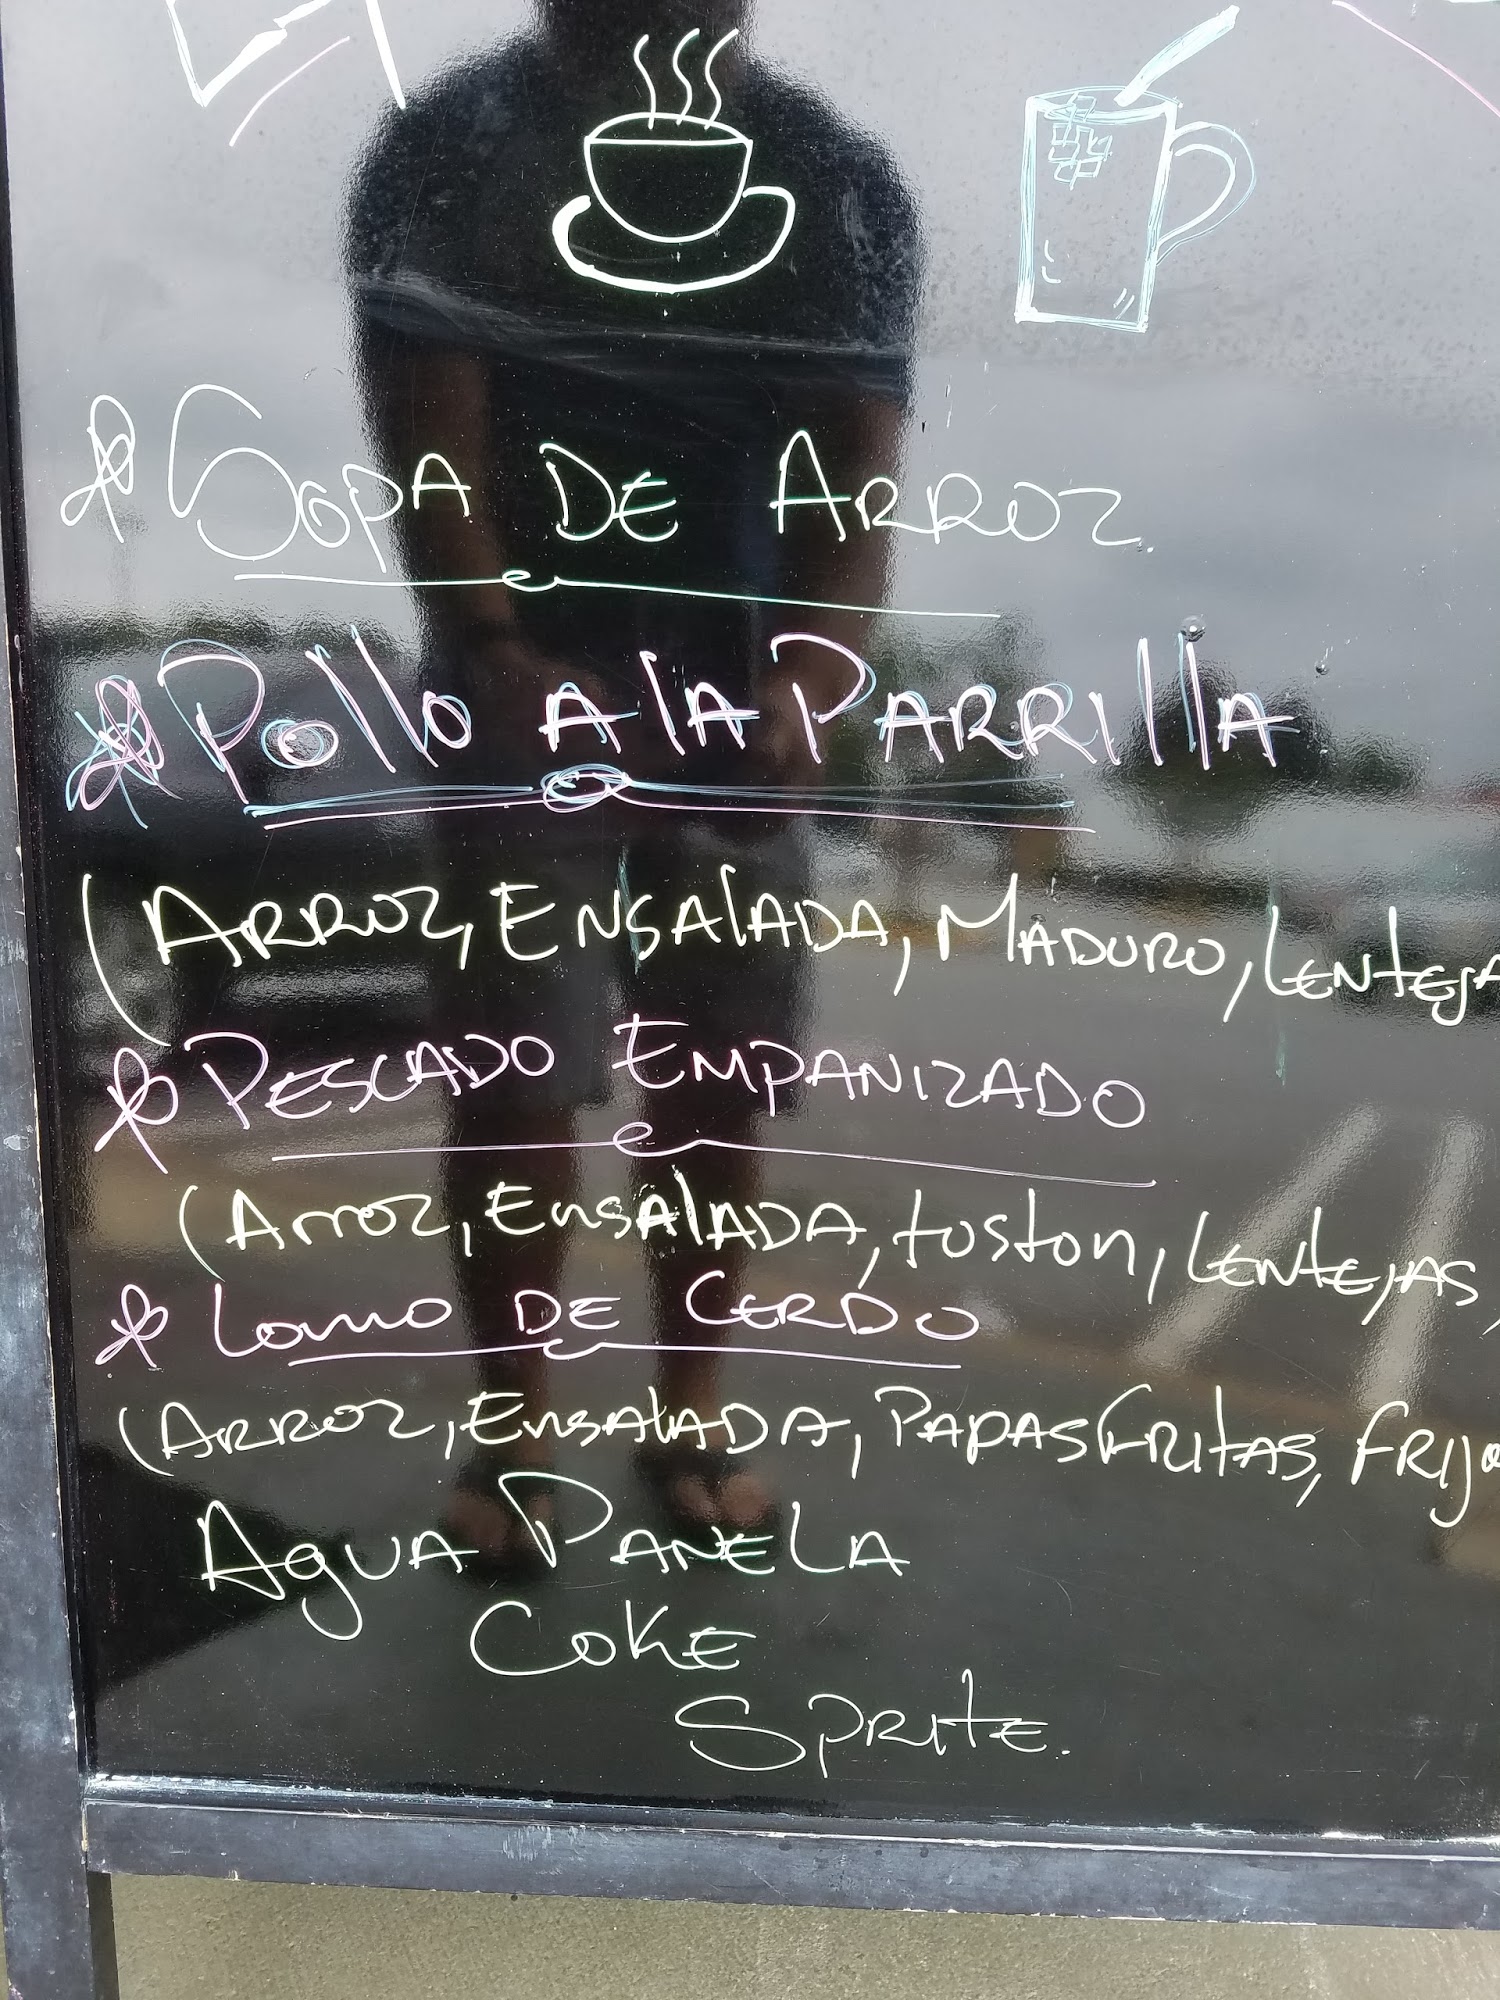 Sopa DE ARROZ.
Pollo A la PARRIllA
(ARROZ, ENSAlADA, MADURO, LENTEJA
PESCADO EMPANIZADO
(Arroz, EnsAlADA, toston, LENTEJAS,
Lomo DE CERDO
(ARROZ, EnsAlADA, PAPAS FRITAS, FRIJO
AgUA PANELA
COKE
SPRITE.